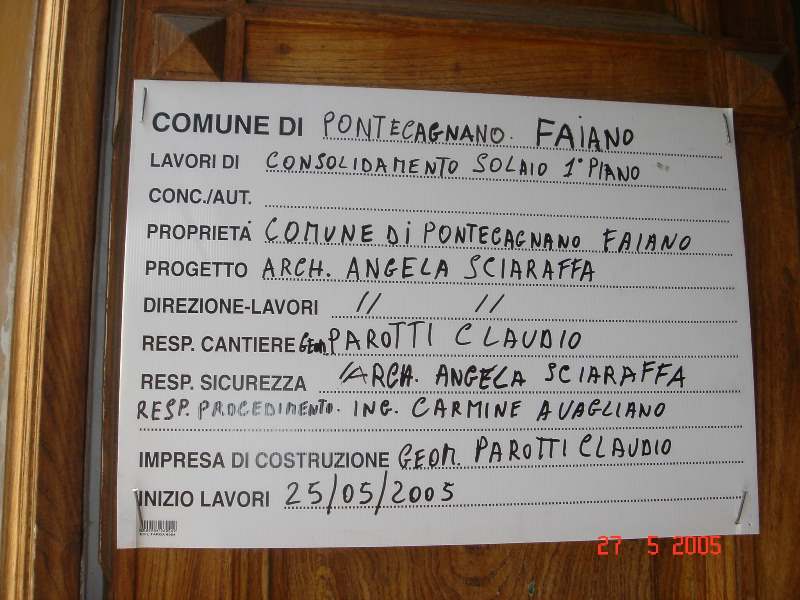 COMUNE DI PONTECAGNANO. FAIANO
LAVORI DI CONSOLIDAMENTO SOLAIO 1° PIANO
CONC./AUT.
PROPRIETÀ COMUNE DI PONTECAGNANO FAIANO
PROGETTO ARCH. ANGELA SCIARAFFA
DIREZIONE-LAVORI // //
RESP. CANTIERE GEOM. PAROTTI CLAUDIO
RESP. SICUREZZA ARCH. ANGELA SCIARAFFA
RESP. PROCEDIMENTO. ING. CARMINE AVAGLIANO
IMPRESA DI COSTRUZIONE GEOM. PAROTTI CLAUDIO
INIZIO LAVORI 25/05/2005
27 5 2005